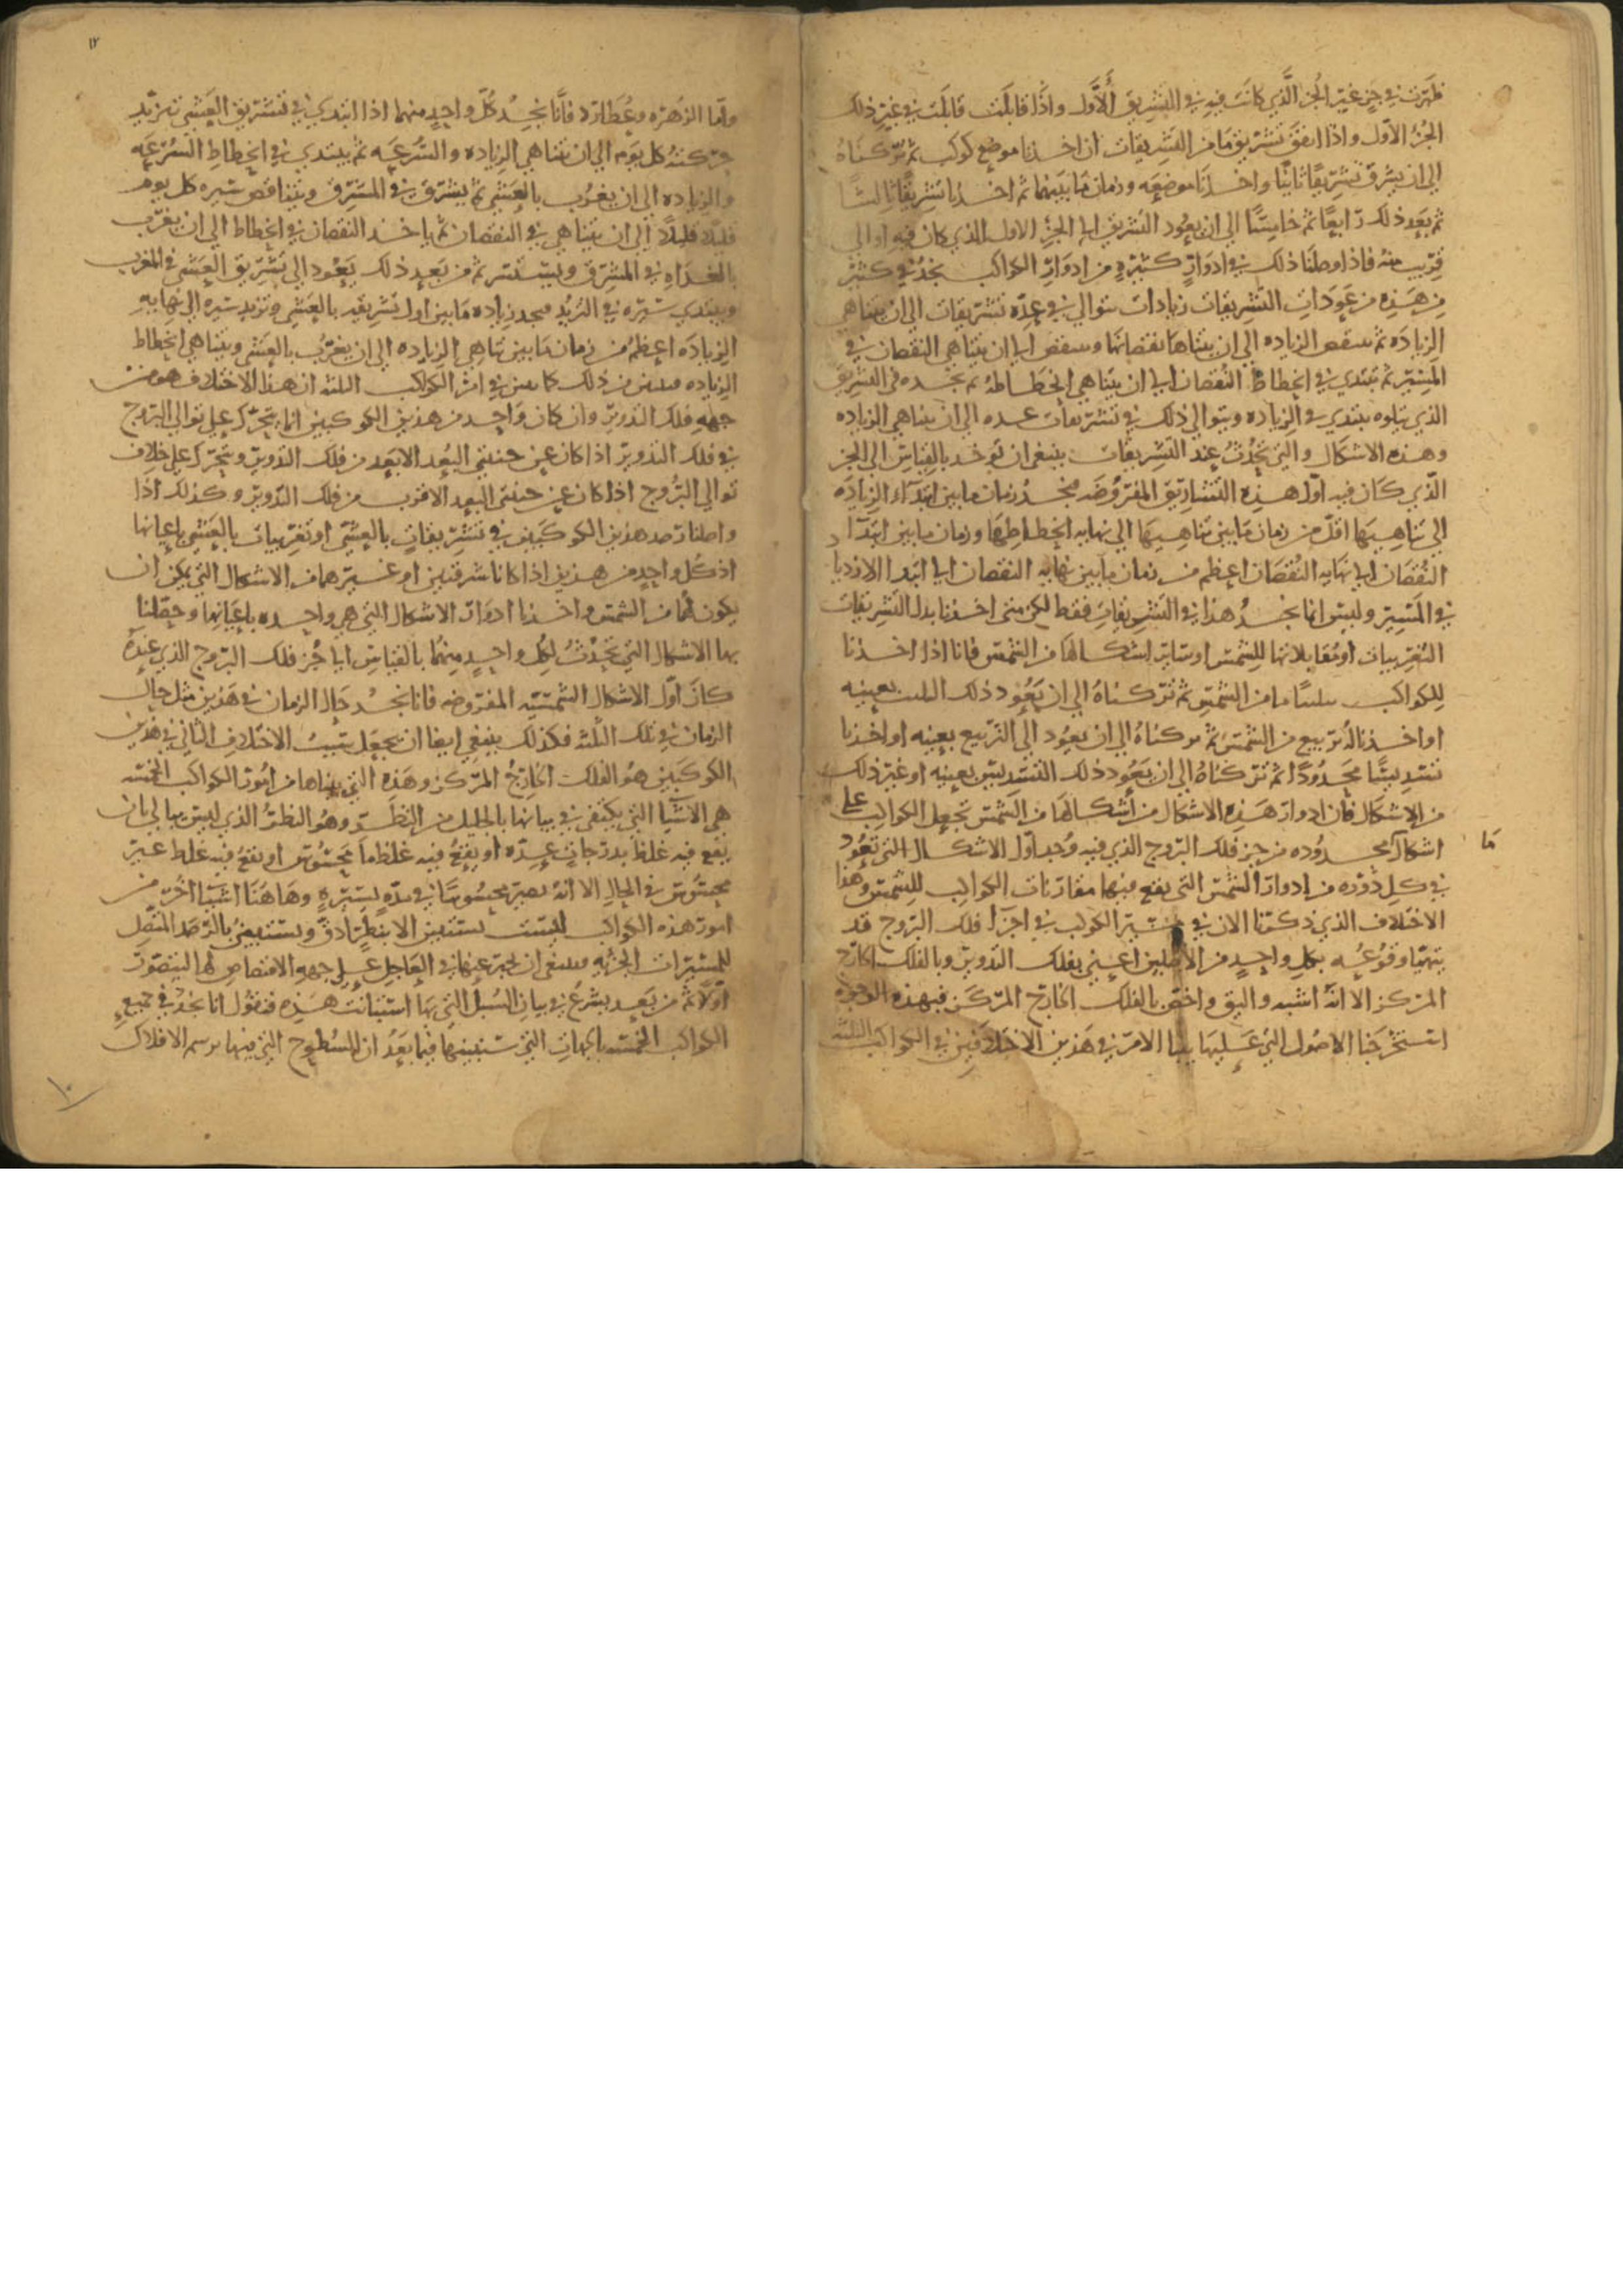 ظهرت في حين غير الجز الذي كانت فيه في التشريق الأول واذا قابلت قابلت في غير ذلك
الجز الاول واذا اتفق تشريق ما من التشريقات ان اخذنا موضع كوكب ثم تركناه
الى ان يشرق تشريقا ثانيا واخذنا موضعه وزمان ما بينهما ثم اخذنا تشريقا ثالثا
ثم بعد ذلك رابعا ثم خامسا الى ان يعود التشريق الى الجز الاول الذي كان فيه او الى
قريب منه فاذا وصلنا ذلك في ادوار كثيرة من ادوار الكواكب نجد في كثير
من هذه من عودات التشريقات زيادات تتوالى في عدة تشريقات الى ان يتناهى
الزيادة ثم ينقص الزياده الى ان يتناها نقصانها وينقص الى ان يتناهى النقصان في
المسير ثم يبتدي في انحطاط النقصان الى ان يتناهى انحطاطه ثم نجده في التشريق
الذي يتلوه يبتدي في الزياده ويتوالى ذلك في تشريقات عده الى ان يتناهى الزياده
وهذه الاشكال والتي تحدث عند التشريقات ينبغي ان توخذ بالقياس الى الجز
الذي كان فيه اول هذه التشاريق المفروضه فنجد زمان ما بين ابتداء الزياده
الى تناهيها اقل من زمان ما بين تناهيها الى نهايه انحطاطها وزمان ما بين ابتدا
النقصان الى نهايه النقصان اعظم من زمان ما بين نهايه النقصان الى ابتدا الازدياد
في المسير وليس انما نجد هذا في التشريقات فقط لكن متى اخذنا بدل التشريقات
التغريبات او مقابلاتها للشمس او ساير اشكالها من الشمس فانا اذا اخذنا
للكواكب تثليثا ما من الشمس ثم تركناه الى ان يعود ذلك التثليث بعينه
او اخذنا له تربيع من الشمس ثم تركناه الى ان يعود الى التربيع بعينه او اخذنا
تسديسا محدودا ثم تركناه الى ان يعود ذلك التسديس بعينه او غير ذلك
من الاشكال فان ادوار هذه الاشكال من اشكالها من الشمس تجعل الكواكب على
اشكال محدوده من جز فلك البروج الذي فيه وجد اول الاشكال التي تعود
ما
في كل دوره من ادوار الشمس التي يقع فيها مقارنات الكواكب للشمس وهذا
الاختلاف الذي ذكرنا الان في مسير الكوكب في اجزا فلك البروج قد
يتهيا وقوعه بكل واحد من الاصلين اعني بفلك التدوير وبالفلك الخارج
المركز الا انه اشبه واليق واخص بالفلك الخارج المركز فبهذه الوجوه
استخرجنا الاصول التي عليها بنينا الامر في هذين الاختلافين في الكواكب الثلثه
١٢
واما الزهره وعطارد فانا نجد كل واحد منهما اذا ابتدي في تشريق العشي تزيد
حركته كل يوم الى ان تتناهى الزياده والسرعه ثم يبتدي في انحطاط السرعه
والزياده الى ان يغرب بالعشي ثم يشرق في المشرق ويتناقص سيره كل يوم
قليلا قليلا الى ان يتناهى في النقصان ثم ياخذ النقصان في انحطاط الى ان يغرب
بالغداه في المشرق ويستتر ثم من بعد ذلك يعود الى تشريق العشي في المغرب
ويبتدي سيره في التزيد فنجد زياده ما بين اول تشريقه بالعشي وتزيد سيره الى نهايه
الزياده اعظم من زمان ما بين تناهي الزياده الى ان يغرب بالعشي ويتناهى انحطاط
الزياده فتبين من ذلك كما تبين في امر الكواكب الثلثه ان هذا الاختلاف هو من
جهة فلك التدوير وان كان واحد من هذين الكوكبين انما يتحرك على توالى البروج
في فلك التدوير اذا كان عن جنبتي البعد الابعد من فلك التدوير ويتحرك على خلاف
توالى البروج اذا كان عن جنبتي البعد الاقرب من فلك التدوير وكذلك اذا
واصلنا رصد هذين الكوكبين في تشريقات بالعشي او تغريبات بالعشي باعيانها
اذ كل واحد من هذين اذا كانا شرقيين او غيرهما من الاشكال التي يمكن ان
يكون لهما من الشمس واخذنا ادوار الاشكال التي هي واحده باعيانها وحصلنا
بها الاشكال التي تحدث لكل واحد منهما بالقياس الى جز فلك البروج الذي عنده
كان اول الاشكال الشمسيه المفروضه فانا نجد حال الزمان في هذين مثل حال
الزمان في تلك الثلثه فكذلك ينبغي ايضا ان يجعل سبب الاختلاف الثاني في هذين
الكوكبين هو الفلك الخارج المركز وهذه التي بيناها من امور الكواكب الخمسه
هي الاشيا التي يكتفى في بيانها بالجليل من النظر وهو النظر الذي ليس يبالى بان
يقع فيه غلط بدرجات عده او يقع فيه غلط ما محسوس او يقع فيه غلط غير
محسوس في الحال الا انه يصير محسوسا في مدة يسيرة وهاهنا اشيا اخر من
امور هذه الكواكب ليست تستبين الا بنظر ادق ويستبين بالرصد المتصل
للمسيرات الجزئيه وينبغي ان نخبر عنها في العاجل على جهه الاقتصاص لها ليتصور
اولا ثم من بعد نشرع في بيان السبل التي بها استبانت هذه فنقول انا نجد في جميع
الكواكب الخمسه بالجهات التي سنبينها فيما بعد ان السطوح التي فيها ترسم الافلاك
١٠